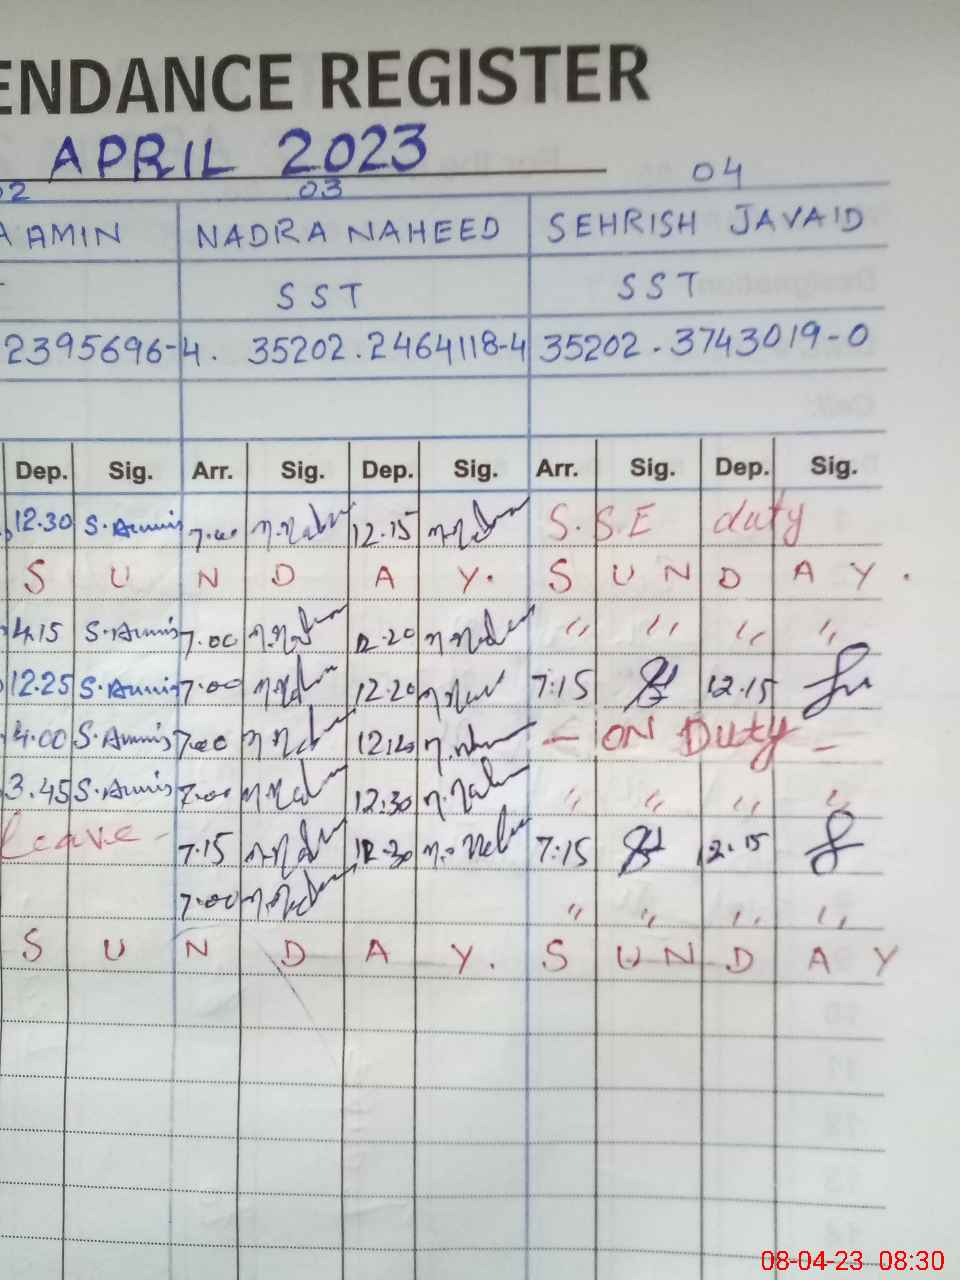 ENDANCE REGISTER
APRIL 2023
02 03 04
A AMIN NADRA NAHEED SEHRISH JAVAID
SST SST
2395696-4. 35202.2464118-4 35202-3743019-0
Dep. Sig. Arr. Sig. Dep. Sig. Arr. Sig. Dep. Sig.
12.30 S.Amin 7.00 12.15 S.S.E duty
S U N D A Y. S U N D A Y.
4.15 S.Amin 7.00 12.20 " " " "
12.25 S.Amin 7.00 12.20 7:15 12.15
4.00 S.Amin 7.00 - ON DUty -
3.45 S.Amin 7.00 12.30 " " " "
leave - 7.15 12.30 7:15 12.15
7.00 " " " "
S U N D A Y. S U N D A Y
08-04-23 08:30